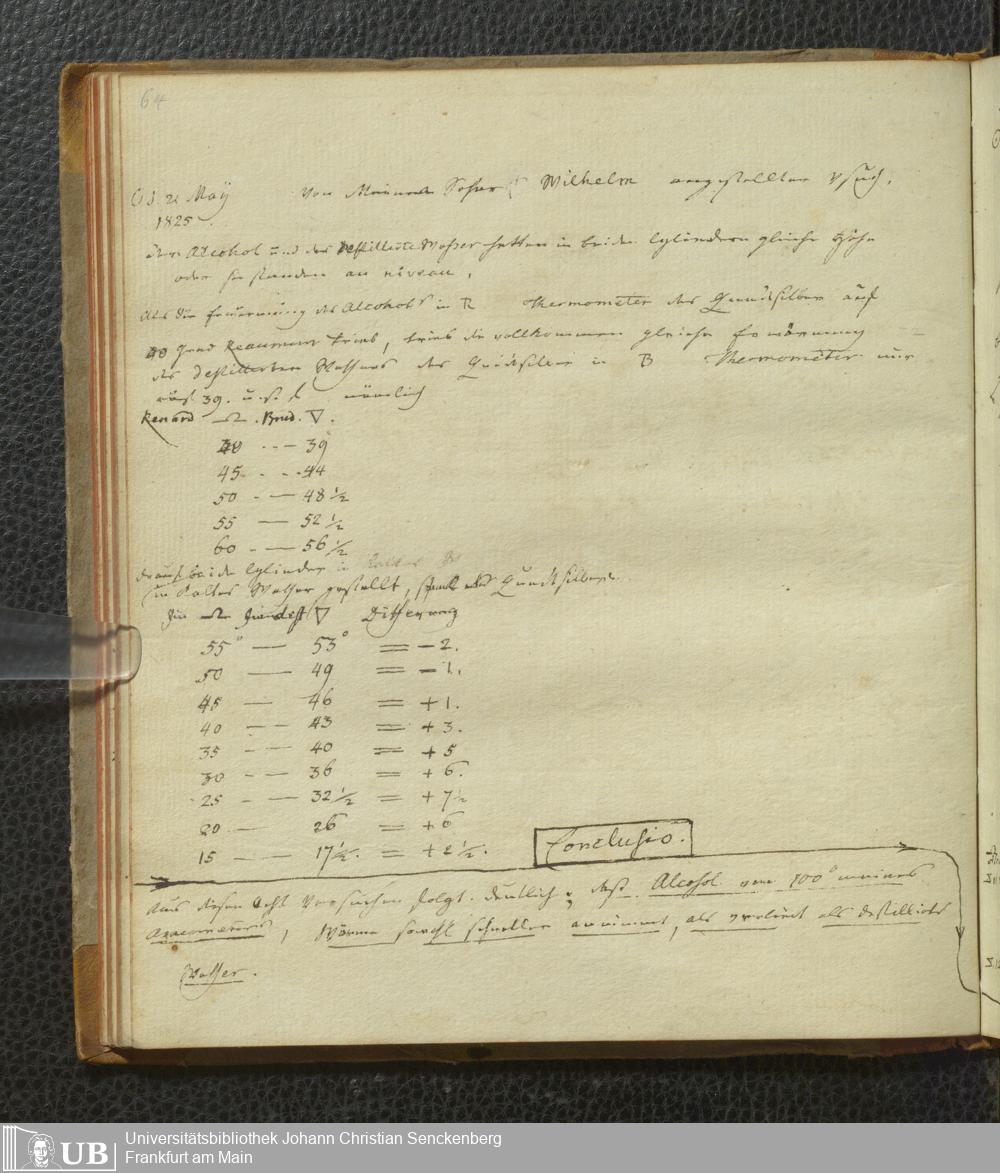 64
d. 21 May Von Meinem Sohne Wilhelm angestellter Vsuch.
1825.
Der Alcohol und das destillirte Waßer hatten in beiden Cylindern gleiche Höhe
oder sie standen au niveau.
Als die Erwärmung des Alcohols in R Thermometer das Quecksilber auf
40 Grad Reaumur trieb, trieb die vollkommen gleiche Erwärmung
des destillirten Wassers das Quecksilber in B Thermometer nur
auf 39. u. s. f. nämlich
40 -- 39
45 -- 44
50 -- 48 1/2
55 — 52 1/2
60 -- 56 1/2
darauf beide Cylinder in
in kaltes Waßer gestellt, sank das Quecksilber
Differenz
55° — 53° = - 2.
50 — 49 = - 1.
45 — 46 = + 1.
40 — 43 = + 3.
35 — 40 = + 5
30 — 36 = + 6.
25 — 32 1/2 = + 7 1/2
20 — 26 = + 6
15 — 17 1/2. = + 2 1/2.
Conclusio.
Aus diesen Versuchen folgt deutlich; daß Alcohol von 100° meines
Araeometers, Wärme sowohl schneller annimmt, als verliert als destillirtes
Waßer.
UB
Universitätsbibliothek Johann Christian Senckenberg
Frankfurt am Main